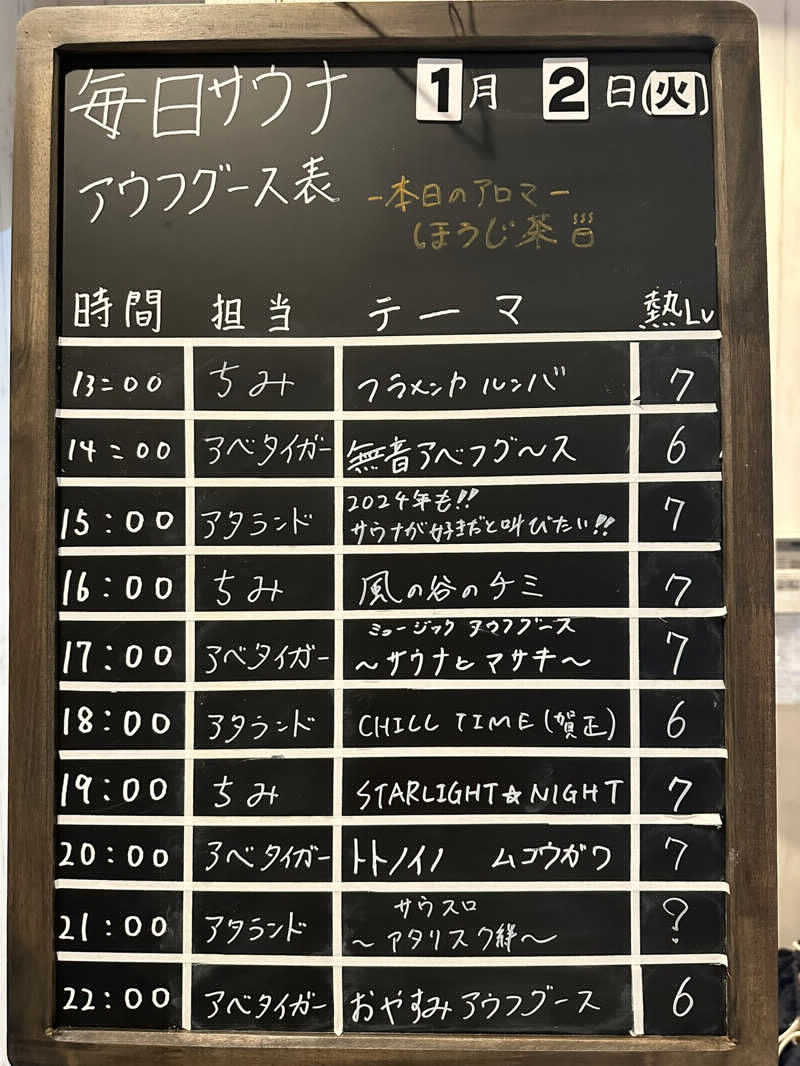 毎日サウナ 1月 2日(火)
アウフグース表
-本日のアロマ-
ほうじ茶
時間 担当 テーマ 熱Lv
13:00 ちみ フラメンカ ルンバ 7
14:00 アベタイガー 無音アベフグ〜ス 6
15:00 アタランド 2024年も!!
サウナが好きだと叫びたい!! 7
16:00 ちみ 風の谷のチミ 7
17:00 アベタイガー ミュージック アウフグース
〜サウナヒマサキ〜 7
18:00 アタランド CHILL TIME (賀正) 6
19:00 ちみ STARLIGHT☆NIGHT 7
20:00 アベタイガー トトノイノ ムコウガワ 7
21:00 アタランド サウスロ
〜アタリスク絆〜 ?
22:00 アベタイガー おやすみアウフグース 6